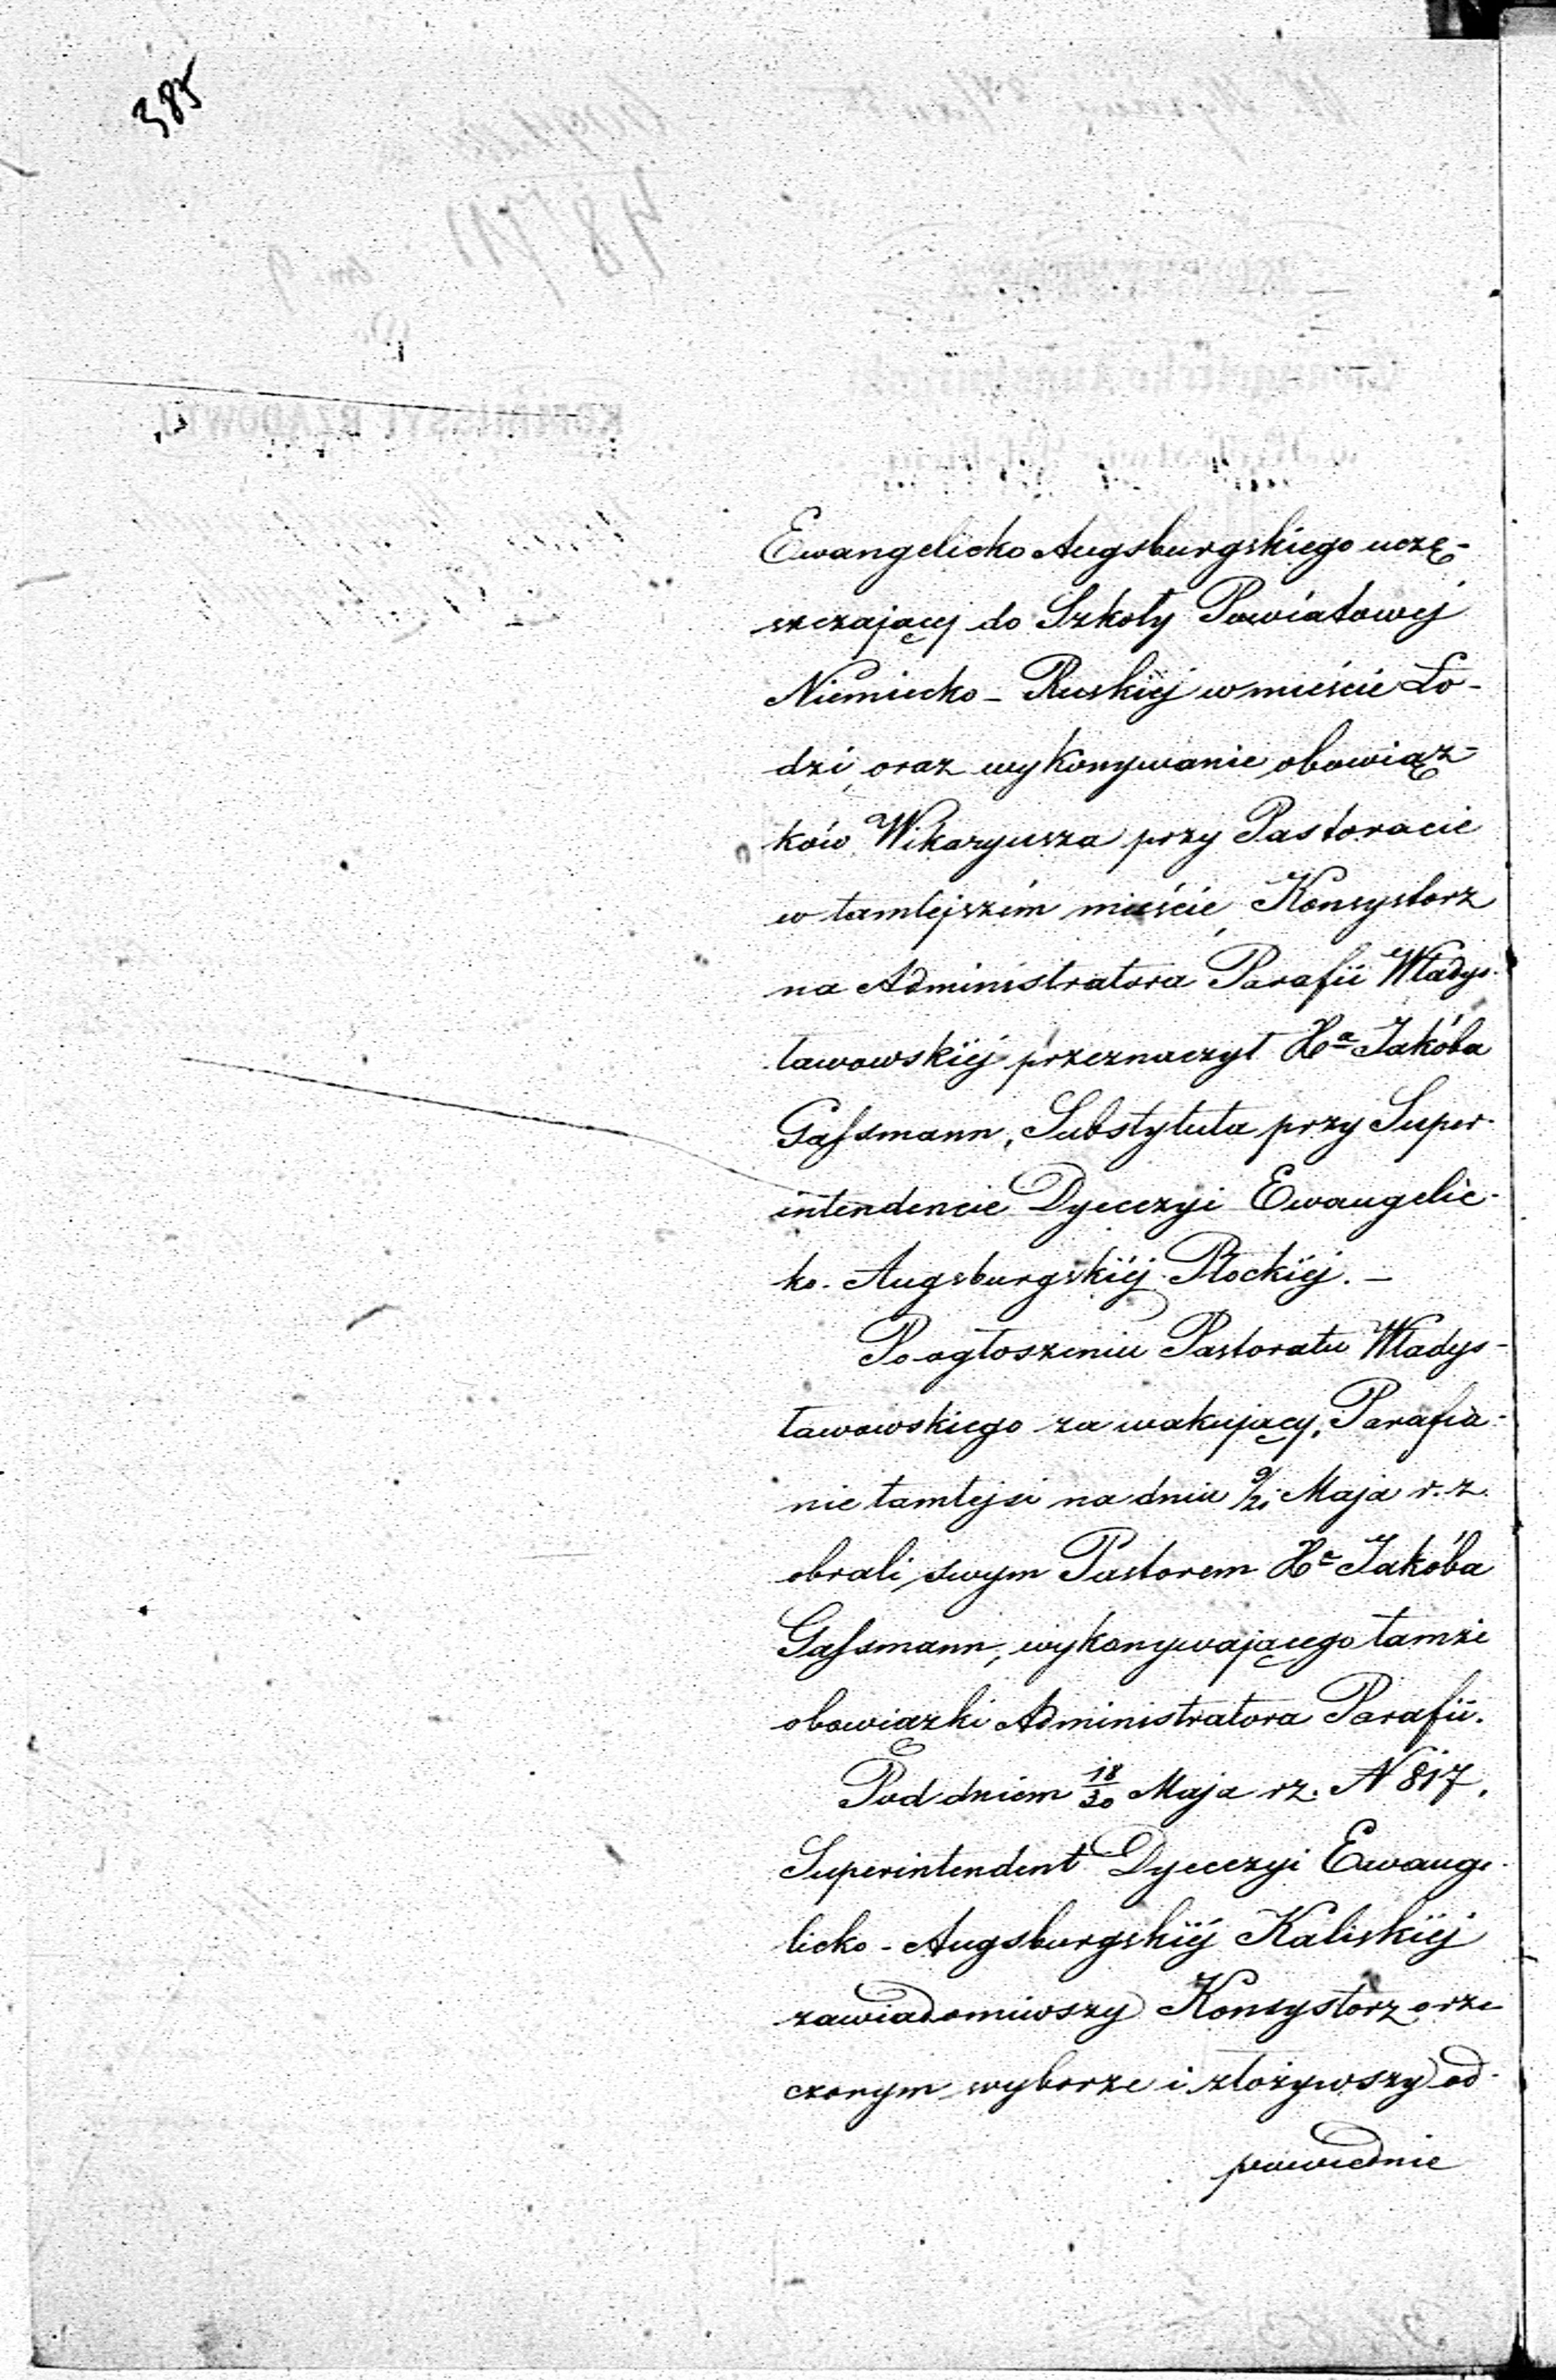 385
Ewangelicko Augsburgskiego uczę-
szczającej do Szkoły Powiatowej
Niemiecko - Ruskiéj w mieście Ło-
dzi, oraz wykonywanie obowiąz-
ków Wikaryusza przy Pastoracie
w tamtejszém mieście, Konsystorz
na Administratora Parafii Włady-
sławowskiéj przeznaczył Xa Jakóba
Gassmann, Substytuta przy Super-
intendencie Dyecezyi Ewangelic-
ko-Augsburgskiéj Płockiéj. —
Po ogłoszeniu Pastoratu Włady-
sławowskiego za wakujący, Parafia-
nie tamtejsi na dniu 9/21 Maja r. z.
obrali swym Pastorem Xa Jakóba
Gassmann, wykonywającego tamże
obowiązki Administratora Parafii.
Pod dniem 18/30 Maja rz. N 817,
Superintendent Dyecezyi Ewange-
licko - Augsburgskiéj Kaliskiéj
zawiadomiwszy Konsystorz o rze
czonym wyborze i złożywszy od-
powiednie